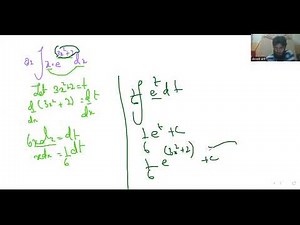 Q2 ∫ x · e^(3x²+2) dx
Let 3x²+2 = t
d/dx (3x²+2) = dt/dx
6x dx = dt
xdx = 1/6 dt
1/6 ∫ e^t dt
1/6 e^t + c
1/6 e^(3x²+2) + c